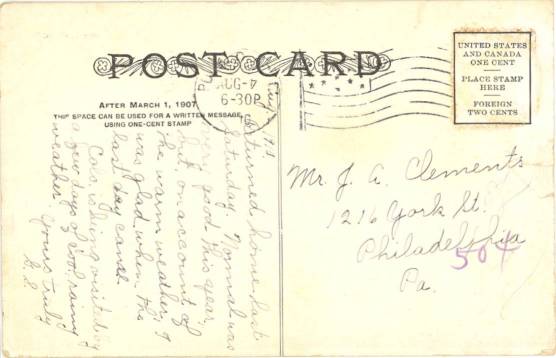 POST CARD
AUG-4
6-30P
UNITED STATES
AND CANADA
ONE CENT
PLACE STAMP
HERE
FOREIGN
TWO CENTS
AFTER MARCH 1, 1907
THIS SPACE CAN BE USED FOR A WRITTEN MESSAGE,
USING ONE-CENT STAMP
Returned home last
Saturday. Normal was
very good this year
but, on account of
the warm weather, I
was glad when the
last day came.
is being visited by
a few days of cool rainy
weather. Yours truly
Mr. J. A. Clements
1216 York St.
Philadelphia
Pa.
504